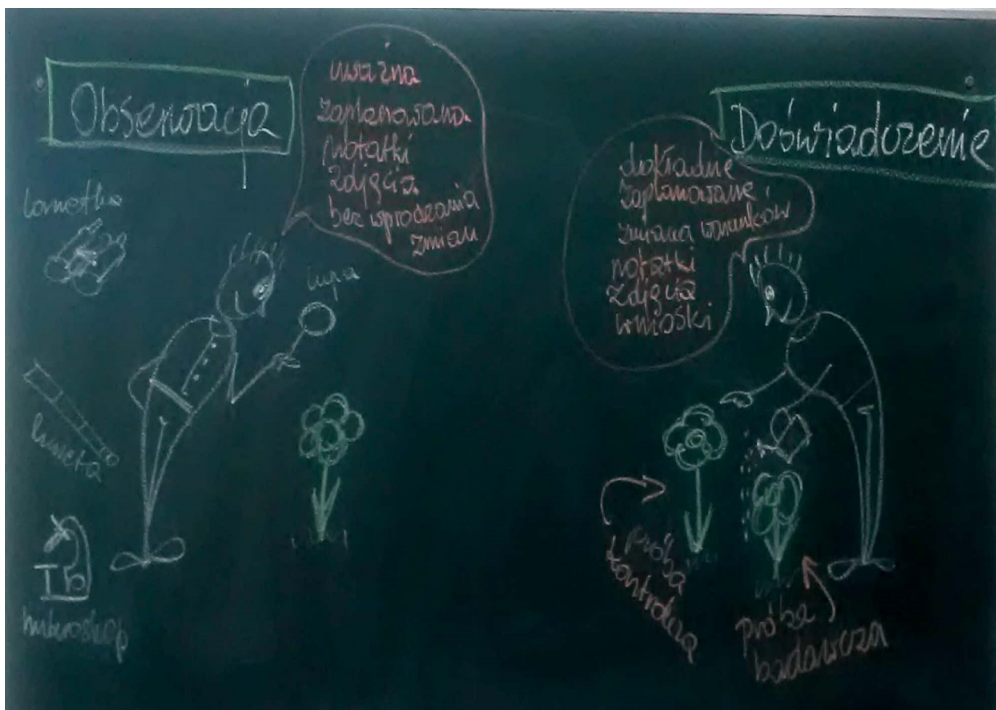 Obserwacja
uważna
zaplanowana
notatki
zdjęcia
bez wprodzania
zmian
lornetka
lupa
luneta
mikroskop
Doświadczenie
dokładne
zaplanowane
zmianą warunków
notatki
zdjęcia
wnioski
próba
kontrolną
próba
badawcza